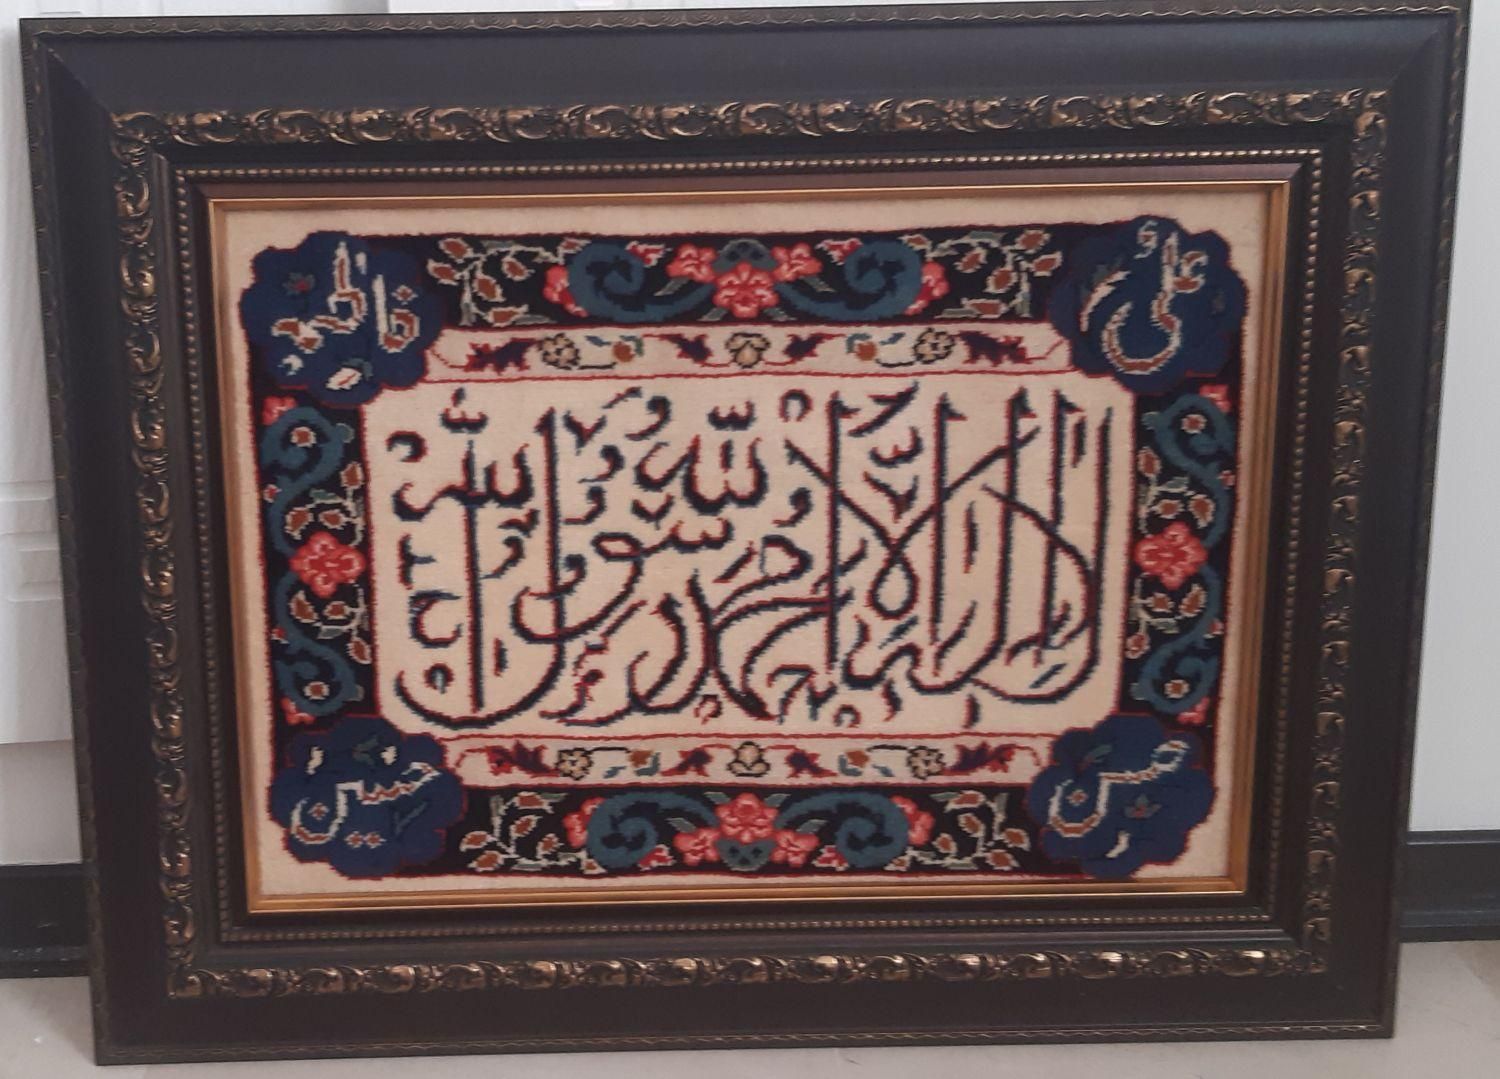 علی
فاطمه
لا إله إلا الله محمد رسول الله
حسن
حسین